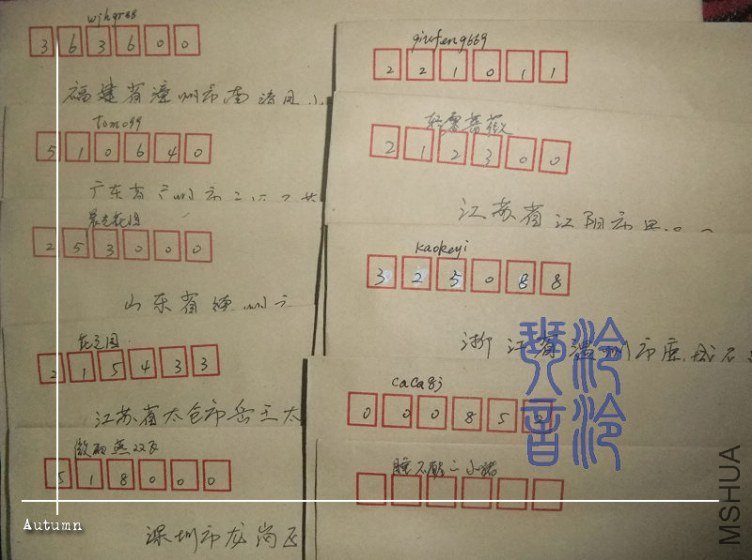 wjhgres
363600
福建省漳州市南
tom099
510640
广东省广州市
253000
山东省德州市
花之国
215433
江苏省太仓市岳王太
微雨燕双飞
518000
深圳市龙岗区
qiufeng669
221011
轻雾蔷薇
212300
江苏省江阴市
kaokeyi
325088
浙江省温州市鹿城
cacagj
000852
睡不醒二小猪
泠泠琴音
Autumn
MSHUA